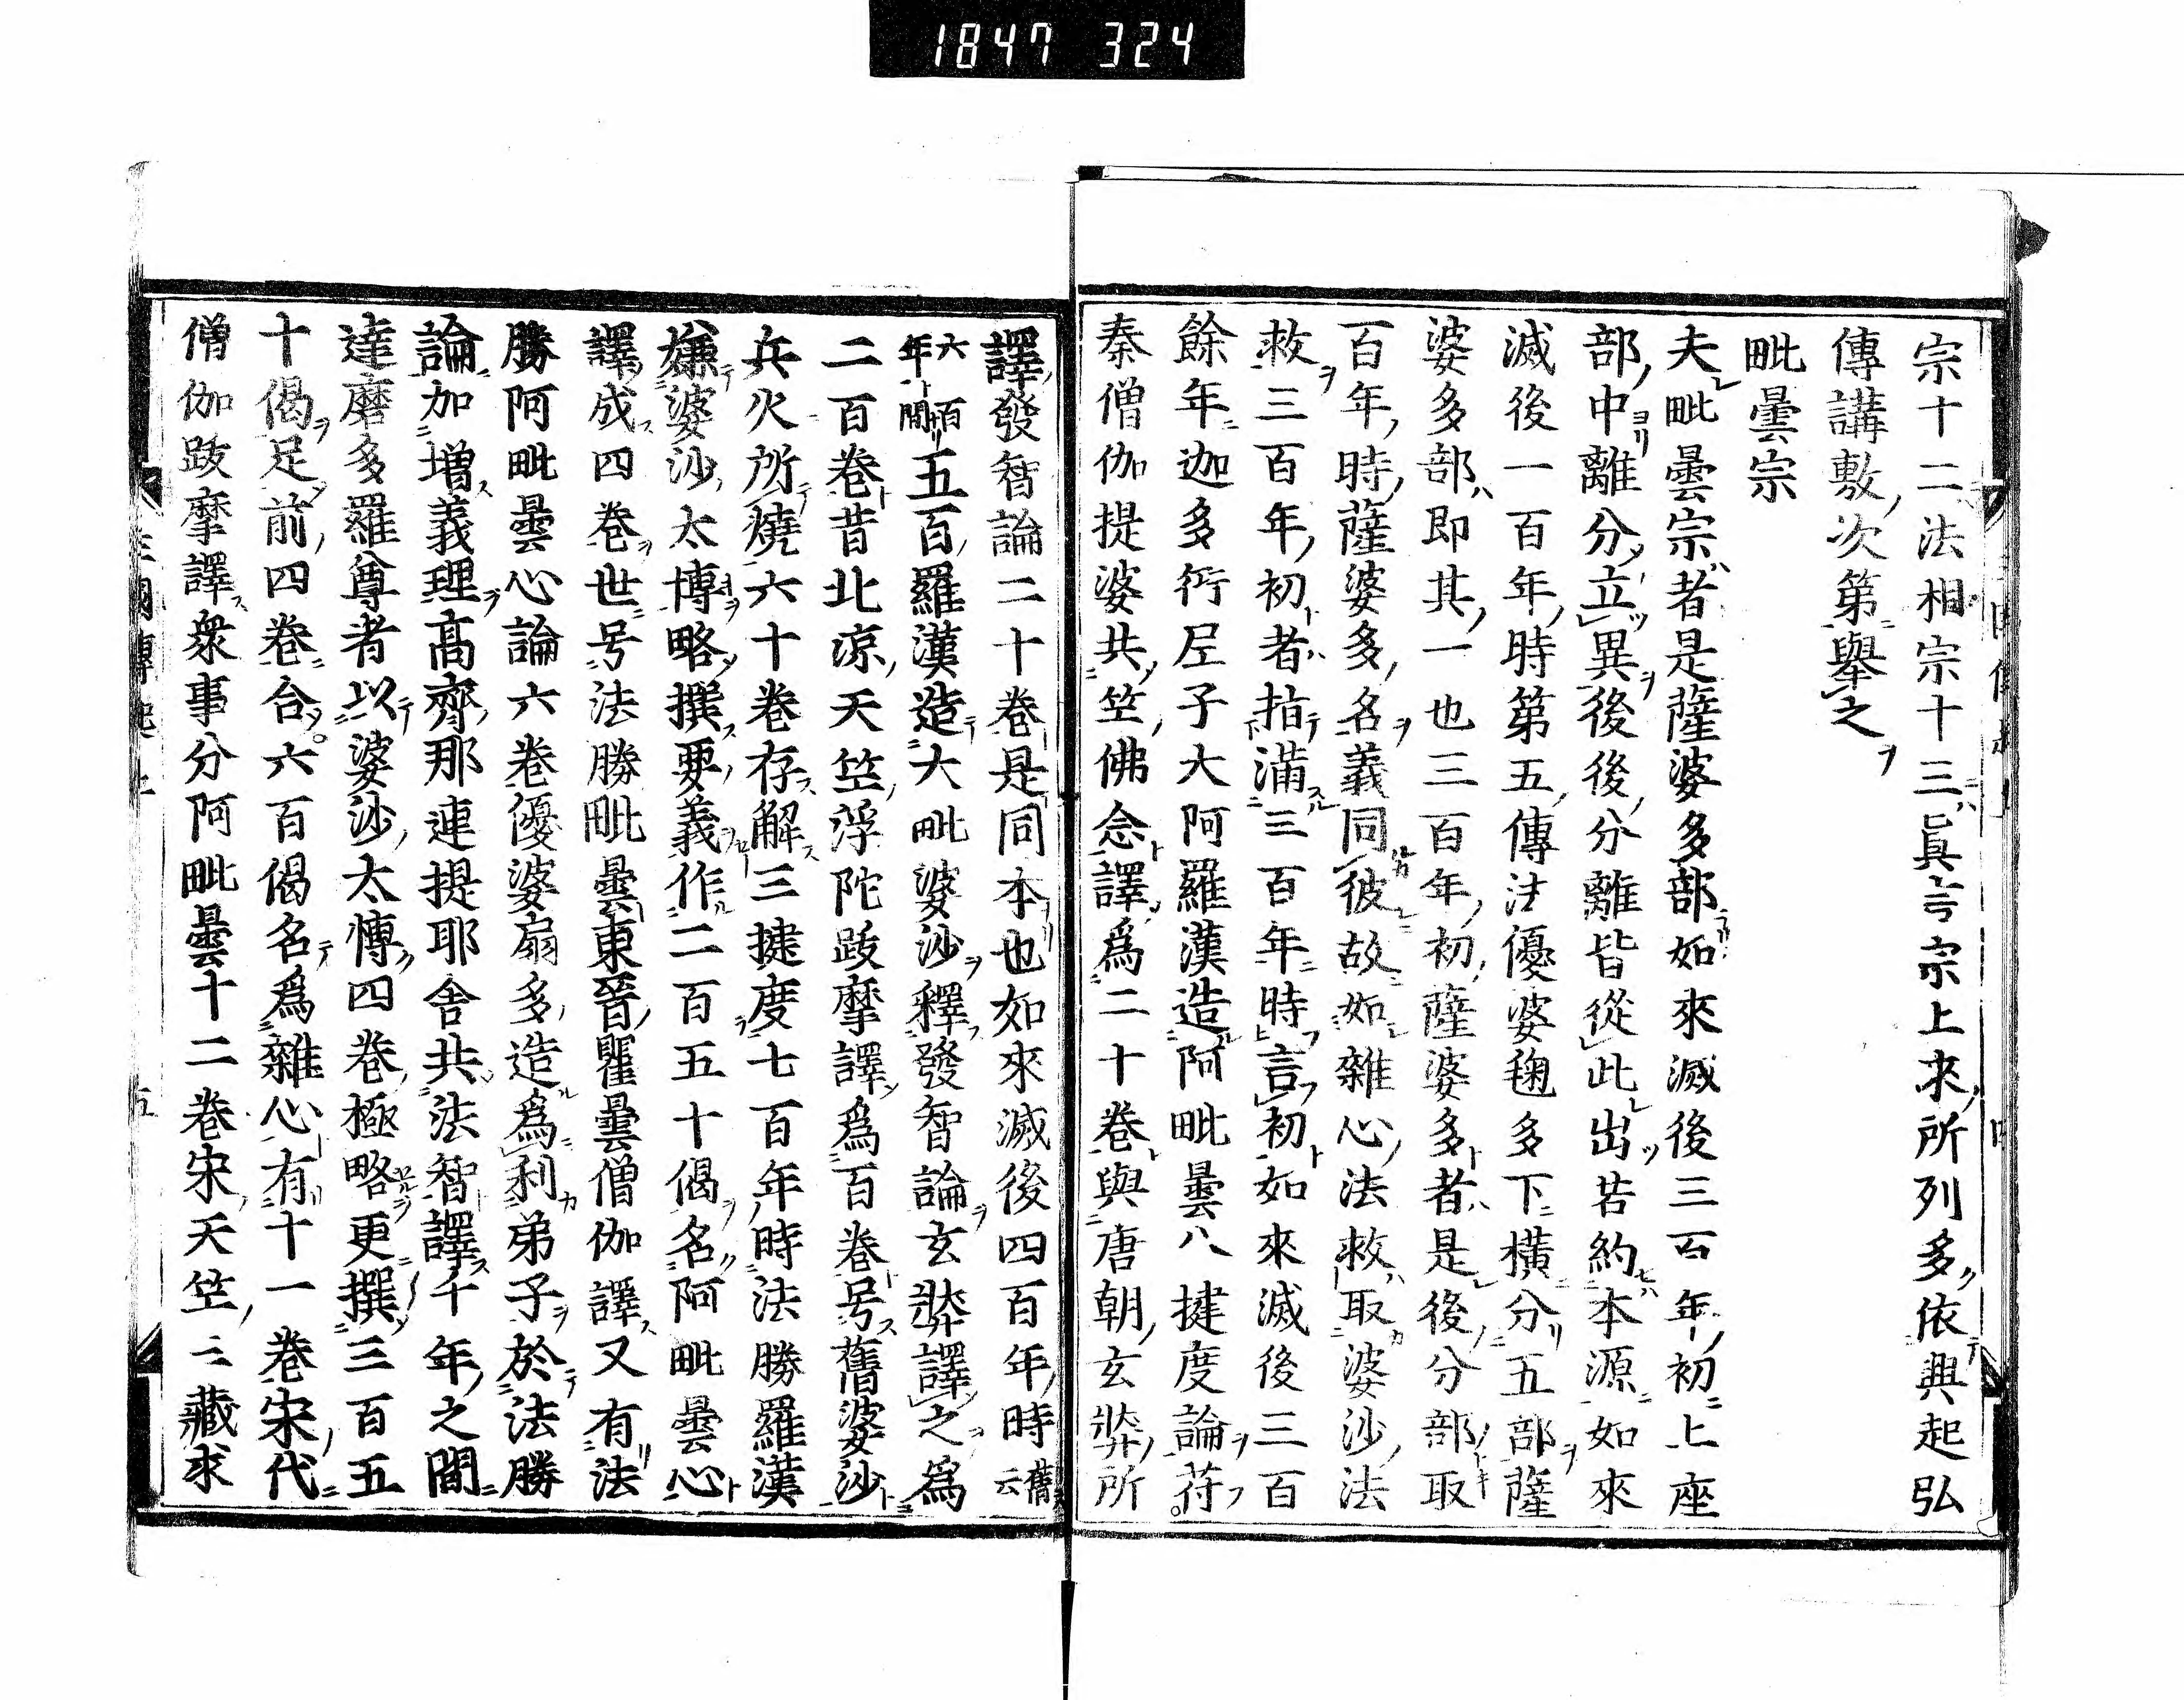 1847 324
宗十二法相宗十三眞言宗上來所列多依典起弘
傳講敷次第擧之
毗曇宗
夫毗曇宗者是薩婆多部如來滅後三百年初上座
部中離分立異後後分離皆從此出若約本源如來
滅後一百年時第五傳法優婆毱多下横分五部薩
婆多部即其一也三百年初薩婆多者是後分部取
百年時薩婆多名義同彼故如雜心法救取婆沙法
救三百年初者指滿三百年時言初如來滅後三百
餘年迦多衍尼子大阿羅漢造阿毗曇八揵度論苻
秦僧伽提婆共竺佛念譯爲二十卷與唐朝玄奘所
譯發智論二十卷是同本也如來滅後四百年時舊云
六百年間五百羅漢造大毗婆沙釋發智論玄奘譯之爲
二百卷昔北涼天竺浮陀跋摩譯爲百卷号舊婆沙
兵火所燒六十卷存解三揵度七百年時法勝羅漢
嫌婆沙太博略撰要義作二百五十偈名阿毗曇心
譯成四卷世号法勝毗曇東晉瞿曇僧伽譯又有法
勝阿毗曇心論六卷優婆扇多造爲利弟子於法勝
論加增義理髙齊那連提耶舍共法智譯千年之間
達磨多羅尊者以婆沙太博四卷極略更撰三百五
十偈足前四卷合六百偈名爲雜心有十一卷宋代
僧伽跋摩譯衆事分阿毗曇十二卷宋天竺三藏求